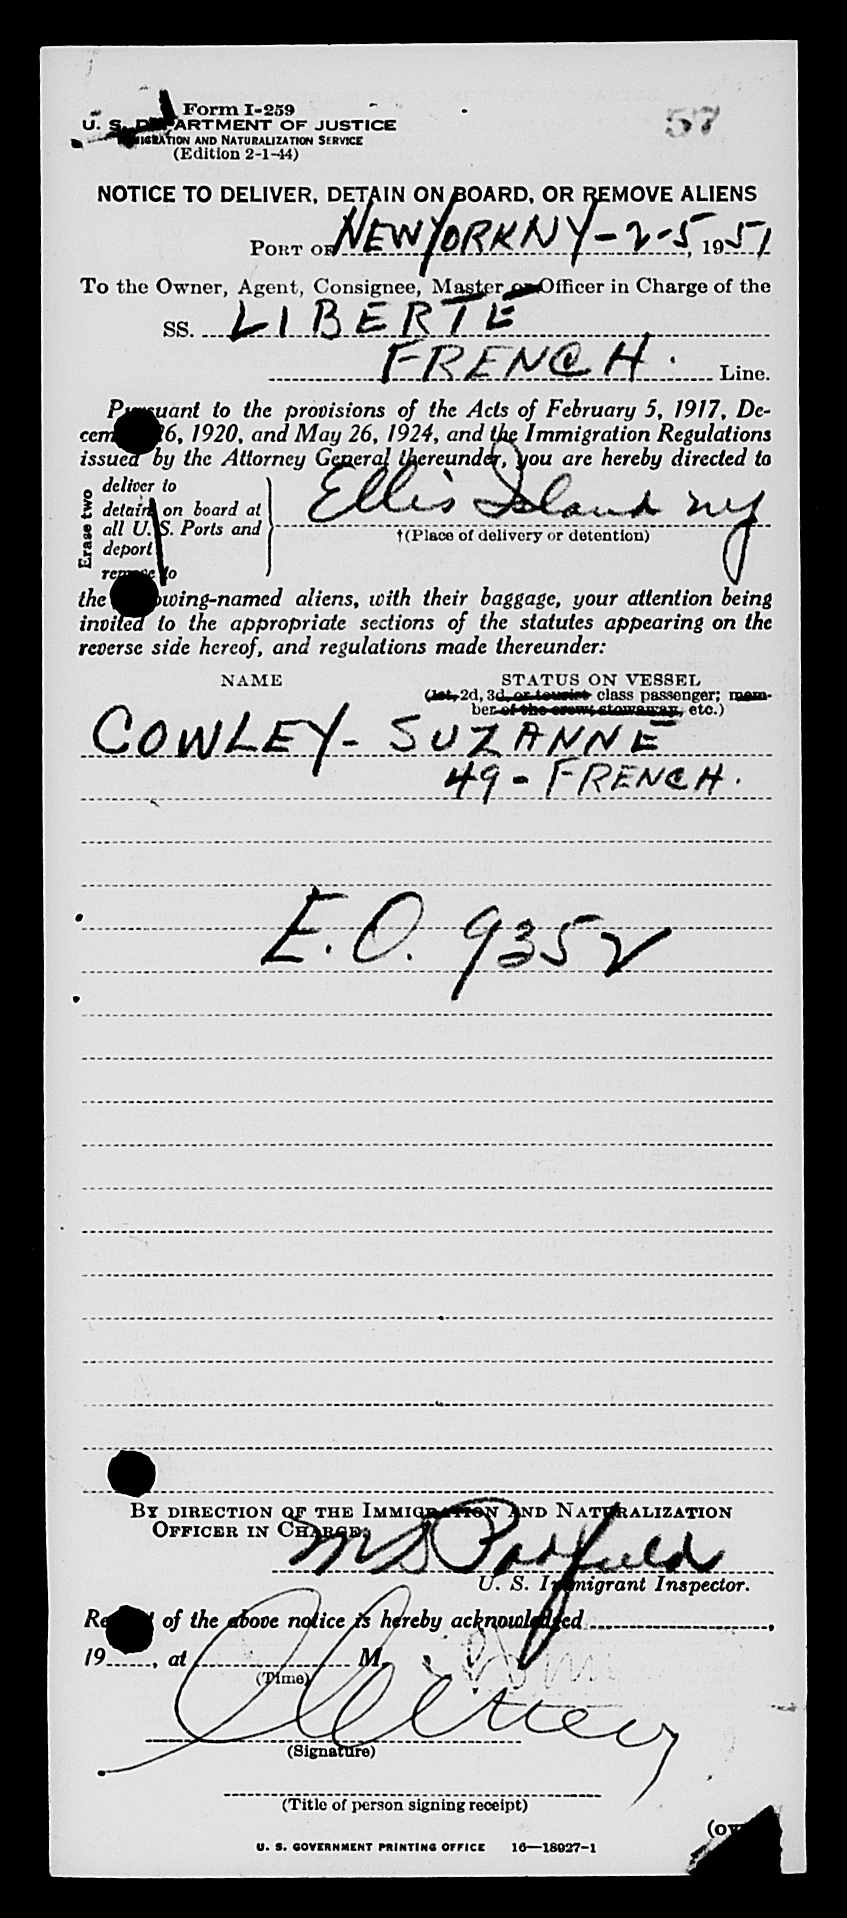 Form I-259
57
U. S. DEPARTMENT OF JUSTICE
IMMIGRATION AND NATURALIZATION SERVICE
(Edition 2-1-44)
NOTICE TO DELIVER, DETAIN ON BOARD, OR REMOVE ALIENS
PORT OF NEW YORK NY - 2-5, 1951
To the Owner, Agent, Consignee, Master or Officer in Charge of the
SS. LIBERTE
FRENCH. Line.
Pursuant to the provisions of the Acts of February 5, 1917, De-
cember 26, 1920, and May 26, 1924, and the Immigration Regulations
issued by the Attorney General thereunder, you are hereby directed to
Erase two
deliver to
detain on board at
all U. S. Ports and
deport
remove to
Ellis Island ny
†(Place of delivery or detention)
the following-named aliens, with their baggage, your attention being
invited to the appropriate sections of the statutes appearing on the
reverse side hereof, and regulations made thereunder:
NAME STATUS ON VESSEL
(1st, 2d, 3d, or tourist class passenger; mem-
ber of the crew; stowaway, etc.)
COWLEY - SUZANNE
49 - FRENCH.
E.O. 9352
BY DIRECTION OF THE IMMIGRATION AND NATURALIZATION
OFFICER IN CHARGE:
U. S. Immigrant Inspector.
Receipt of the above notice is hereby acknowledged ,
19 , at M.
(Time)
(Signature)
(Title of person signing receipt)
U. S. GOVERNMENT PRINTING OFFICE 16—18027-1